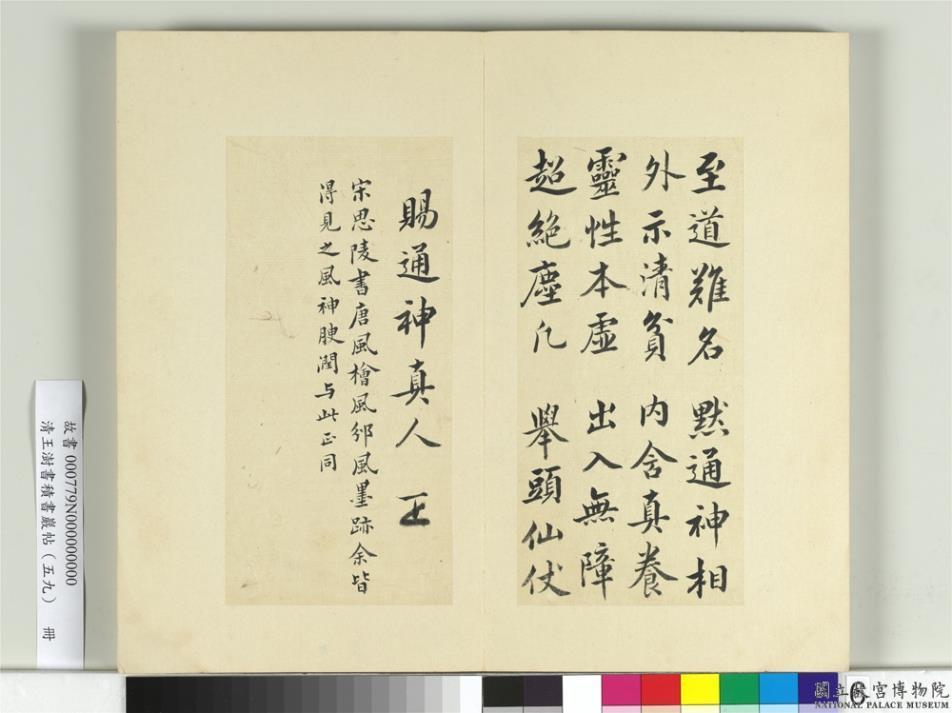 至道難名 默通神相
外示清貧 內含真養
靈性本虛 出入無障
超絕塵凡 舉頭仙仗
賜通神真人 王
宋思陵書唐風檜風邠風墨跡余皆
得見之風神腴潤与此正同
故書 000779N000000000
清王澍書積書巖帖(五九) 冊
國立故宮博物院
NATIONAL PALACE MUSEUM
C